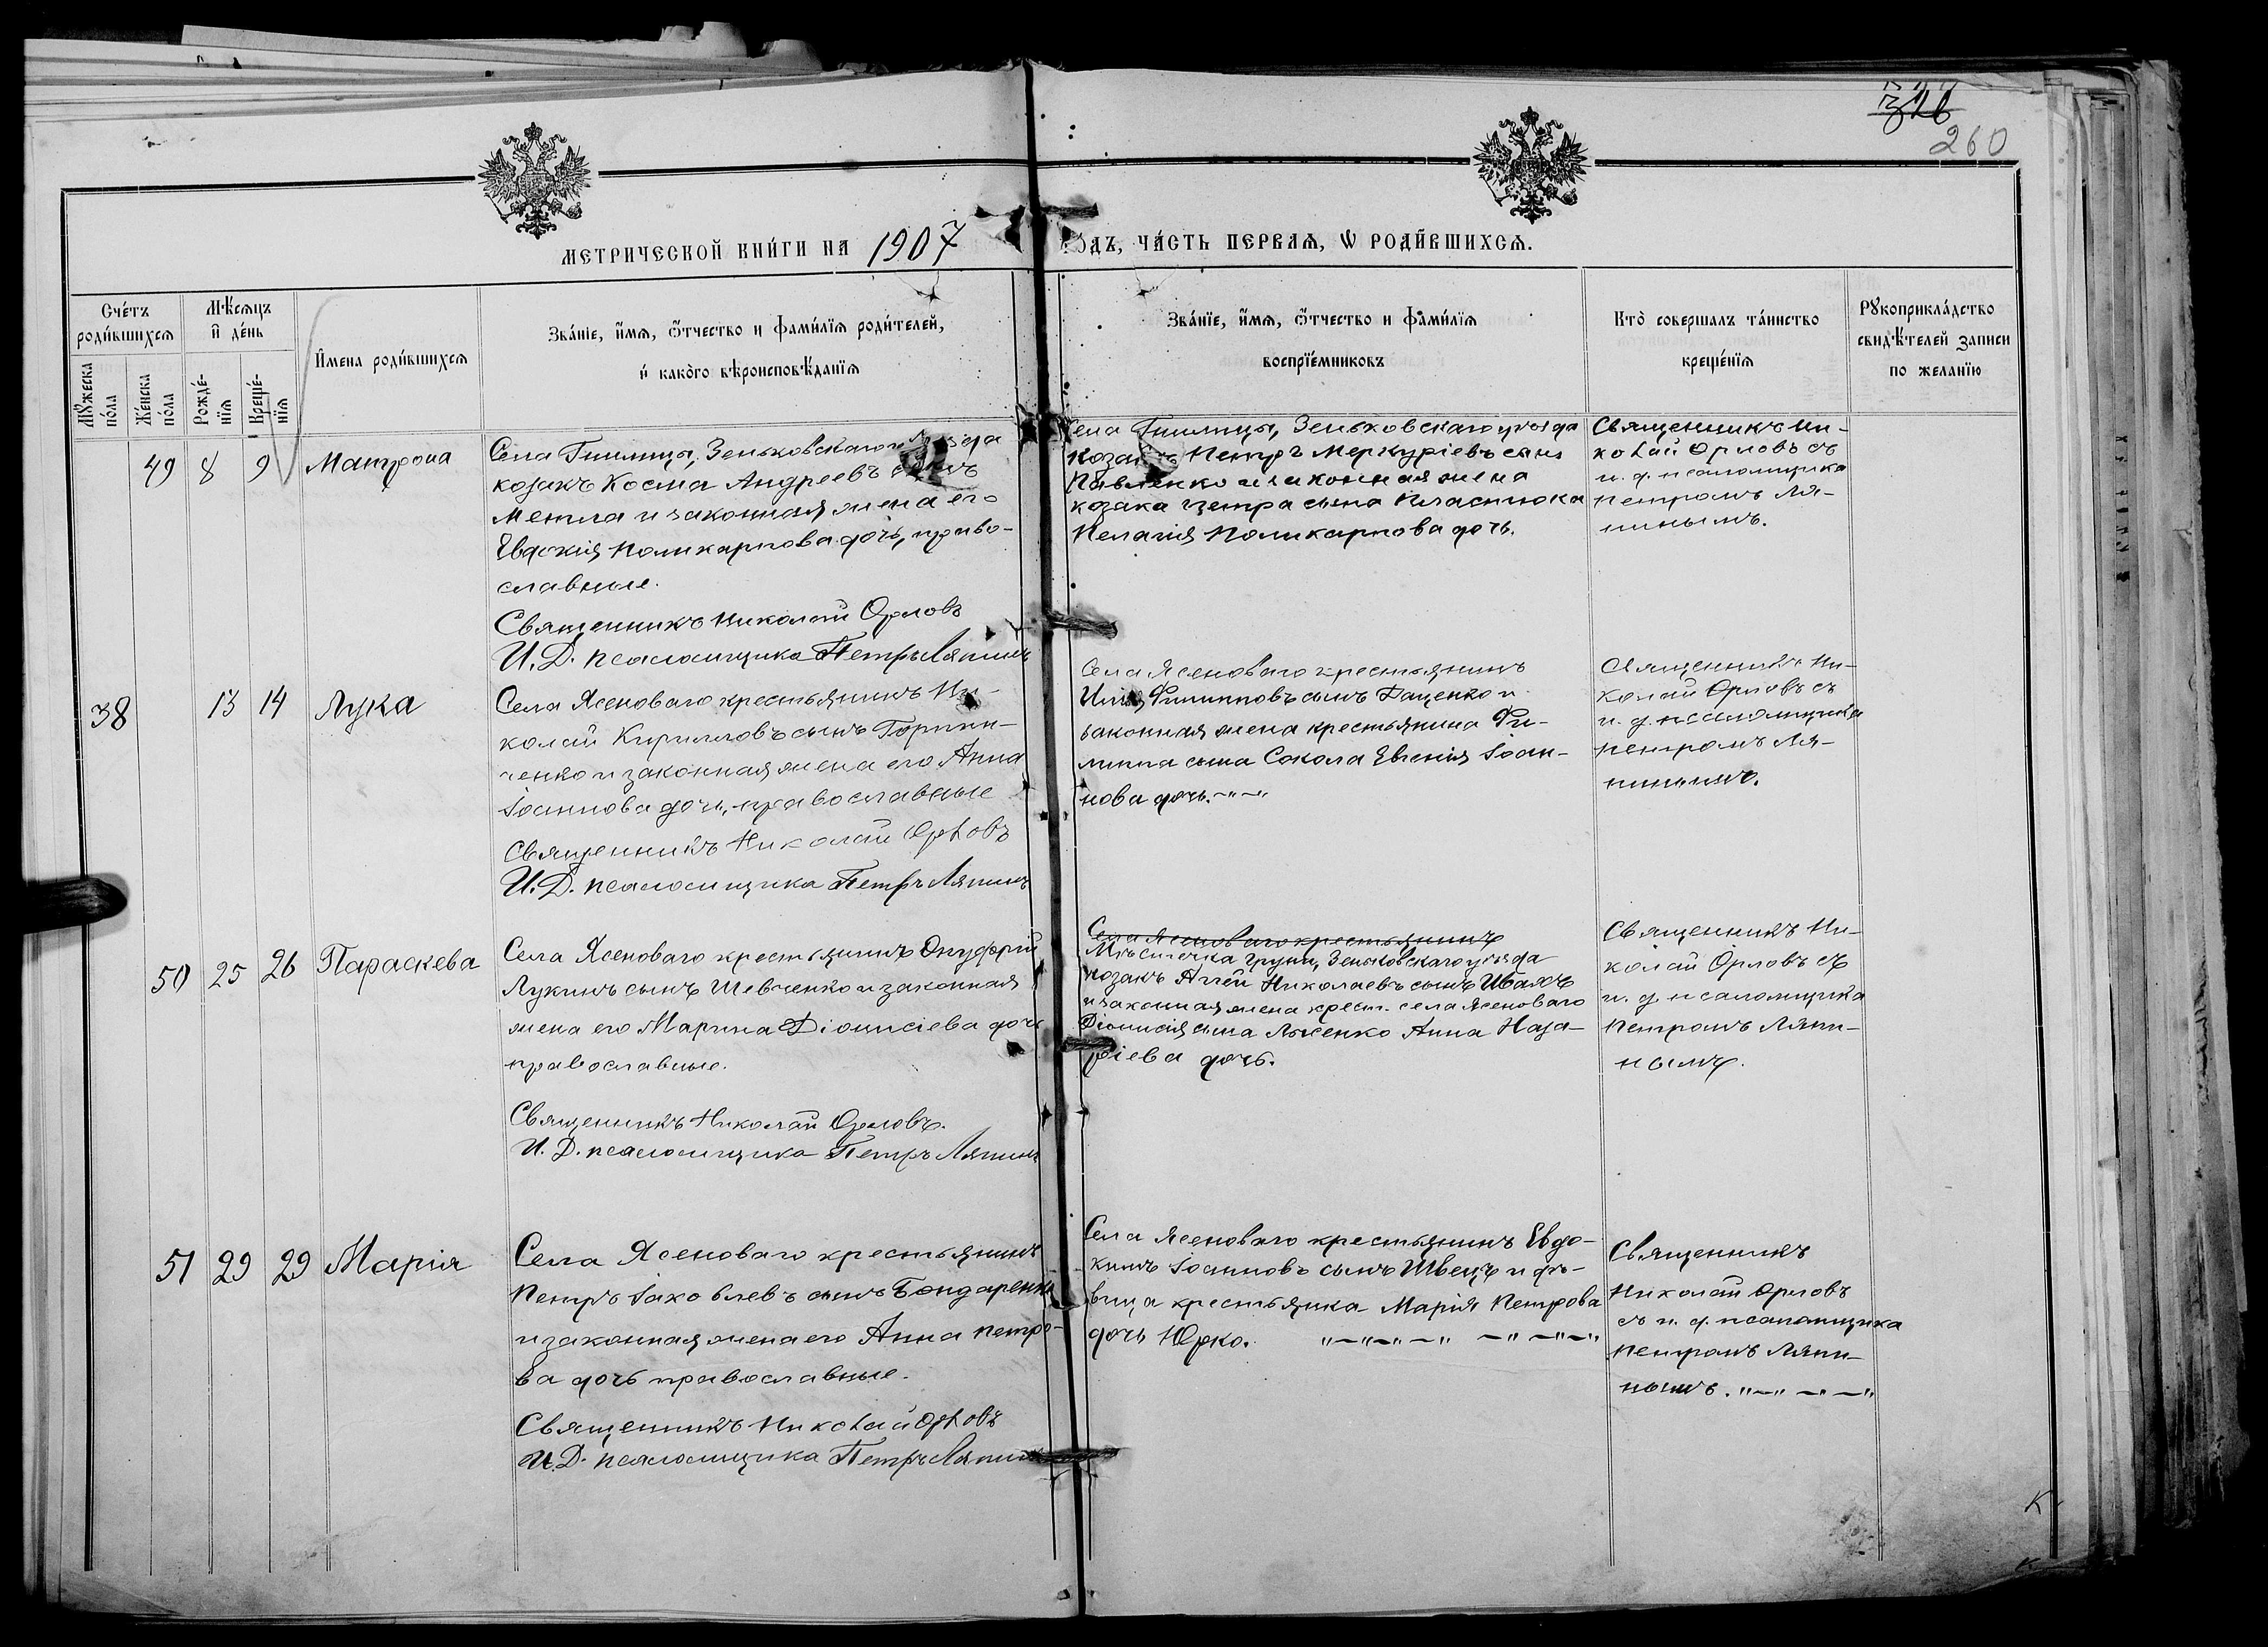 326
260
МЕТРИЧЕСКОЙ КНИ́ГИ НА 1907
ГОДЪ, ЧА́СТЬ ПЕРВАѦ, Ѡ РОДИ́ВШИХСѦ.
Сче́тъ роди́вшихсѧ
Мꙋ́жеска по́ла
Же́нска по́ла
Мѣ́сѧцъ и҆ де́нь
Рожде́-нїѧ
Креще́-нїѧ
И҆мена роди́вшихсѧ
Зва́нїе, и҆́мѧ, ѻ҆́тчество и фами́лїѧ роди́телей,
и҆ како́го вѣроисповѣ́данїѧ
Зва́нїе, и҆́мѧ, ѻ҆́тчество и фами́лїѧ
воспрїе́мниковъ
Кто̀ соверша́лъ та́инство
креще́нїѧ
Рꙋкоприкла́дство
свидѣ́телей записи
по жела́нїю
49 8 9 Матрона
Села Гнилицы, Зеньковскаго уѣзда
козакъ Косма Андреевъ сынъ
Метла и законная жена его
Евдокія Поликарпова дочь, право-
славные.
Священникъ Николай Орловъ
И. Д. псаломщика Петръ Ляпинъ
Села Гнилицы, Зеньковскаго уѣзда
козакъ Петръ Меркуріевъ сынъ
Павленко и законная жена
козака Петра сына Пластюка
Пелагія Поликарпова дочь.
Священникъ Ни-
колай Орловъ съ
и. д. псаломщика
Петромъ Ля-
пинымъ.
38 13 14 Лука
Села Ясеноваго крестьянинъ Ни-
колай Кирилловъ сынъ Горпин-
ченко и законная жена его Анна
Іоаннова дочь, православные
Священникъ Николай Орловъ
И. Д. псаломщика Петръ Ляпинъ
Села Ясеноваго крестьянинъ
Илія Филипповъ сынъ Даценко и
законная жена крестьянина Фи-
липпа сына Сокола Евгенія Іоан-
нова дочь. -"-"
Священникъ Ни-
колай Орловъ съ
и. д. псаломщика
Петромъ Ля-
пинымъ.
50 25 26 Параскева
Села Ясеноваго крестьянинъ Онуфрій
Лукинъ сынъ Шевченко и законная
жена его Марина Діонисіева дочь
православные.
Священникъ Николай Орловъ.
И. Д. псаломщика Петръ Ляпинъ
Села Ясеноваго крестьянинъ
Мѣстечка Груни, Зеньковскаго уѣзда
козакъ Николаевъ сынъ
и законная жена крест. села Ясеноваго
Діонисія сына Лысенко Анна Наза-
ріева дочь.
Священникъ Ни-
колай Орловъ съ
и. д. псаломщика
Петромъ Ляпи-
нымъ.
51 29 29 Марія
Села Ясеноваго крестьянинъ
Петръ Іаковлевъ сынъ Бондаренко
и законная жена его Анна Петро-
ва дочь православные.
Священникъ Николай Орловъ
И. Д. псаломщика Петръ Ляпинъ
Села Ясеноваго крестьянинъ Евдо-
кимъ Іоанновъ сынъ Швецъ и дѣ-
вица крестьянка Марія Петрова
дочь Юрко. "-"-"-" -"-"-"
Священникъ
Николай Орловъ
съ и. д. псаломщика
Петромъ Ляпи-
нымъ. "-" -"-"
К